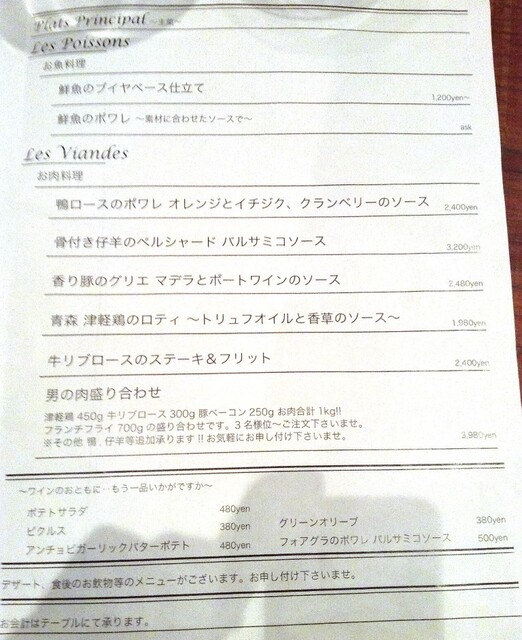 Plats Principal ～主菜～
Les Poissons
お魚料理
鮮魚のブイヤベース仕立て 1,200yen~
鮮魚のポワレ ～素材に合わせたソースで～ ask
Les Viandes
お肉料理
鴨ロースのポワレ オレンジとイチジク、クランベリーのソース 2,400yen
骨付き仔羊のペルシャード バルサミコソース 3,200yen
香り豚のグリエ マデラとポートワインのソース 2,480yen
青森 津軽鶏のロティ ～トリュフオイルと香草のソース～ 1,980yen
牛リブロースのステーキ＆フリット 2,400yen
男の肉盛り合わせ
津軽鶏 450g 牛リブロース 300g 豚ベーコン 250g お肉合計 1kg!!
フランチフライ 700g の盛り合わせです。３名様位～ご注文下さいませ。
※その他 鴨 , 仔羊等追加承ります !! お気軽にお申し付け下さいませ。 3,980yen
～ワインのおともに‥もう一品いかがですか～
ポテトサラダ 480yen
ピクルス 380yen グリーンオリーブ 380yen
アンチョビガーリックバターポテト 480yen フォアグラのポワレ バルサミコソース 500yen
デザート、食後のお飲物等のメニューがございます。お申し付け下さいませ。
お会計はテーブルにて承ります。